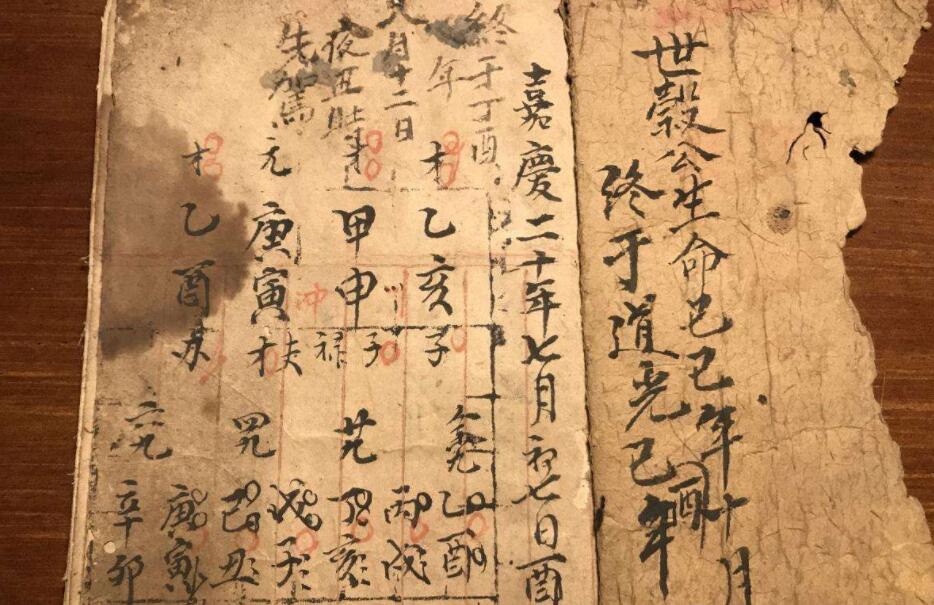 世穀公生命己巳年十月
終于道光己酉年
嘉慶二十年七月初七日酉
終于丁酉年
八月十二日
夜丑時
乙亥子
甲申子禄
冲
元庚寅
乙酉
乙酉
丙戌
丁亥
戊子
己丑
庚寅
辛卯